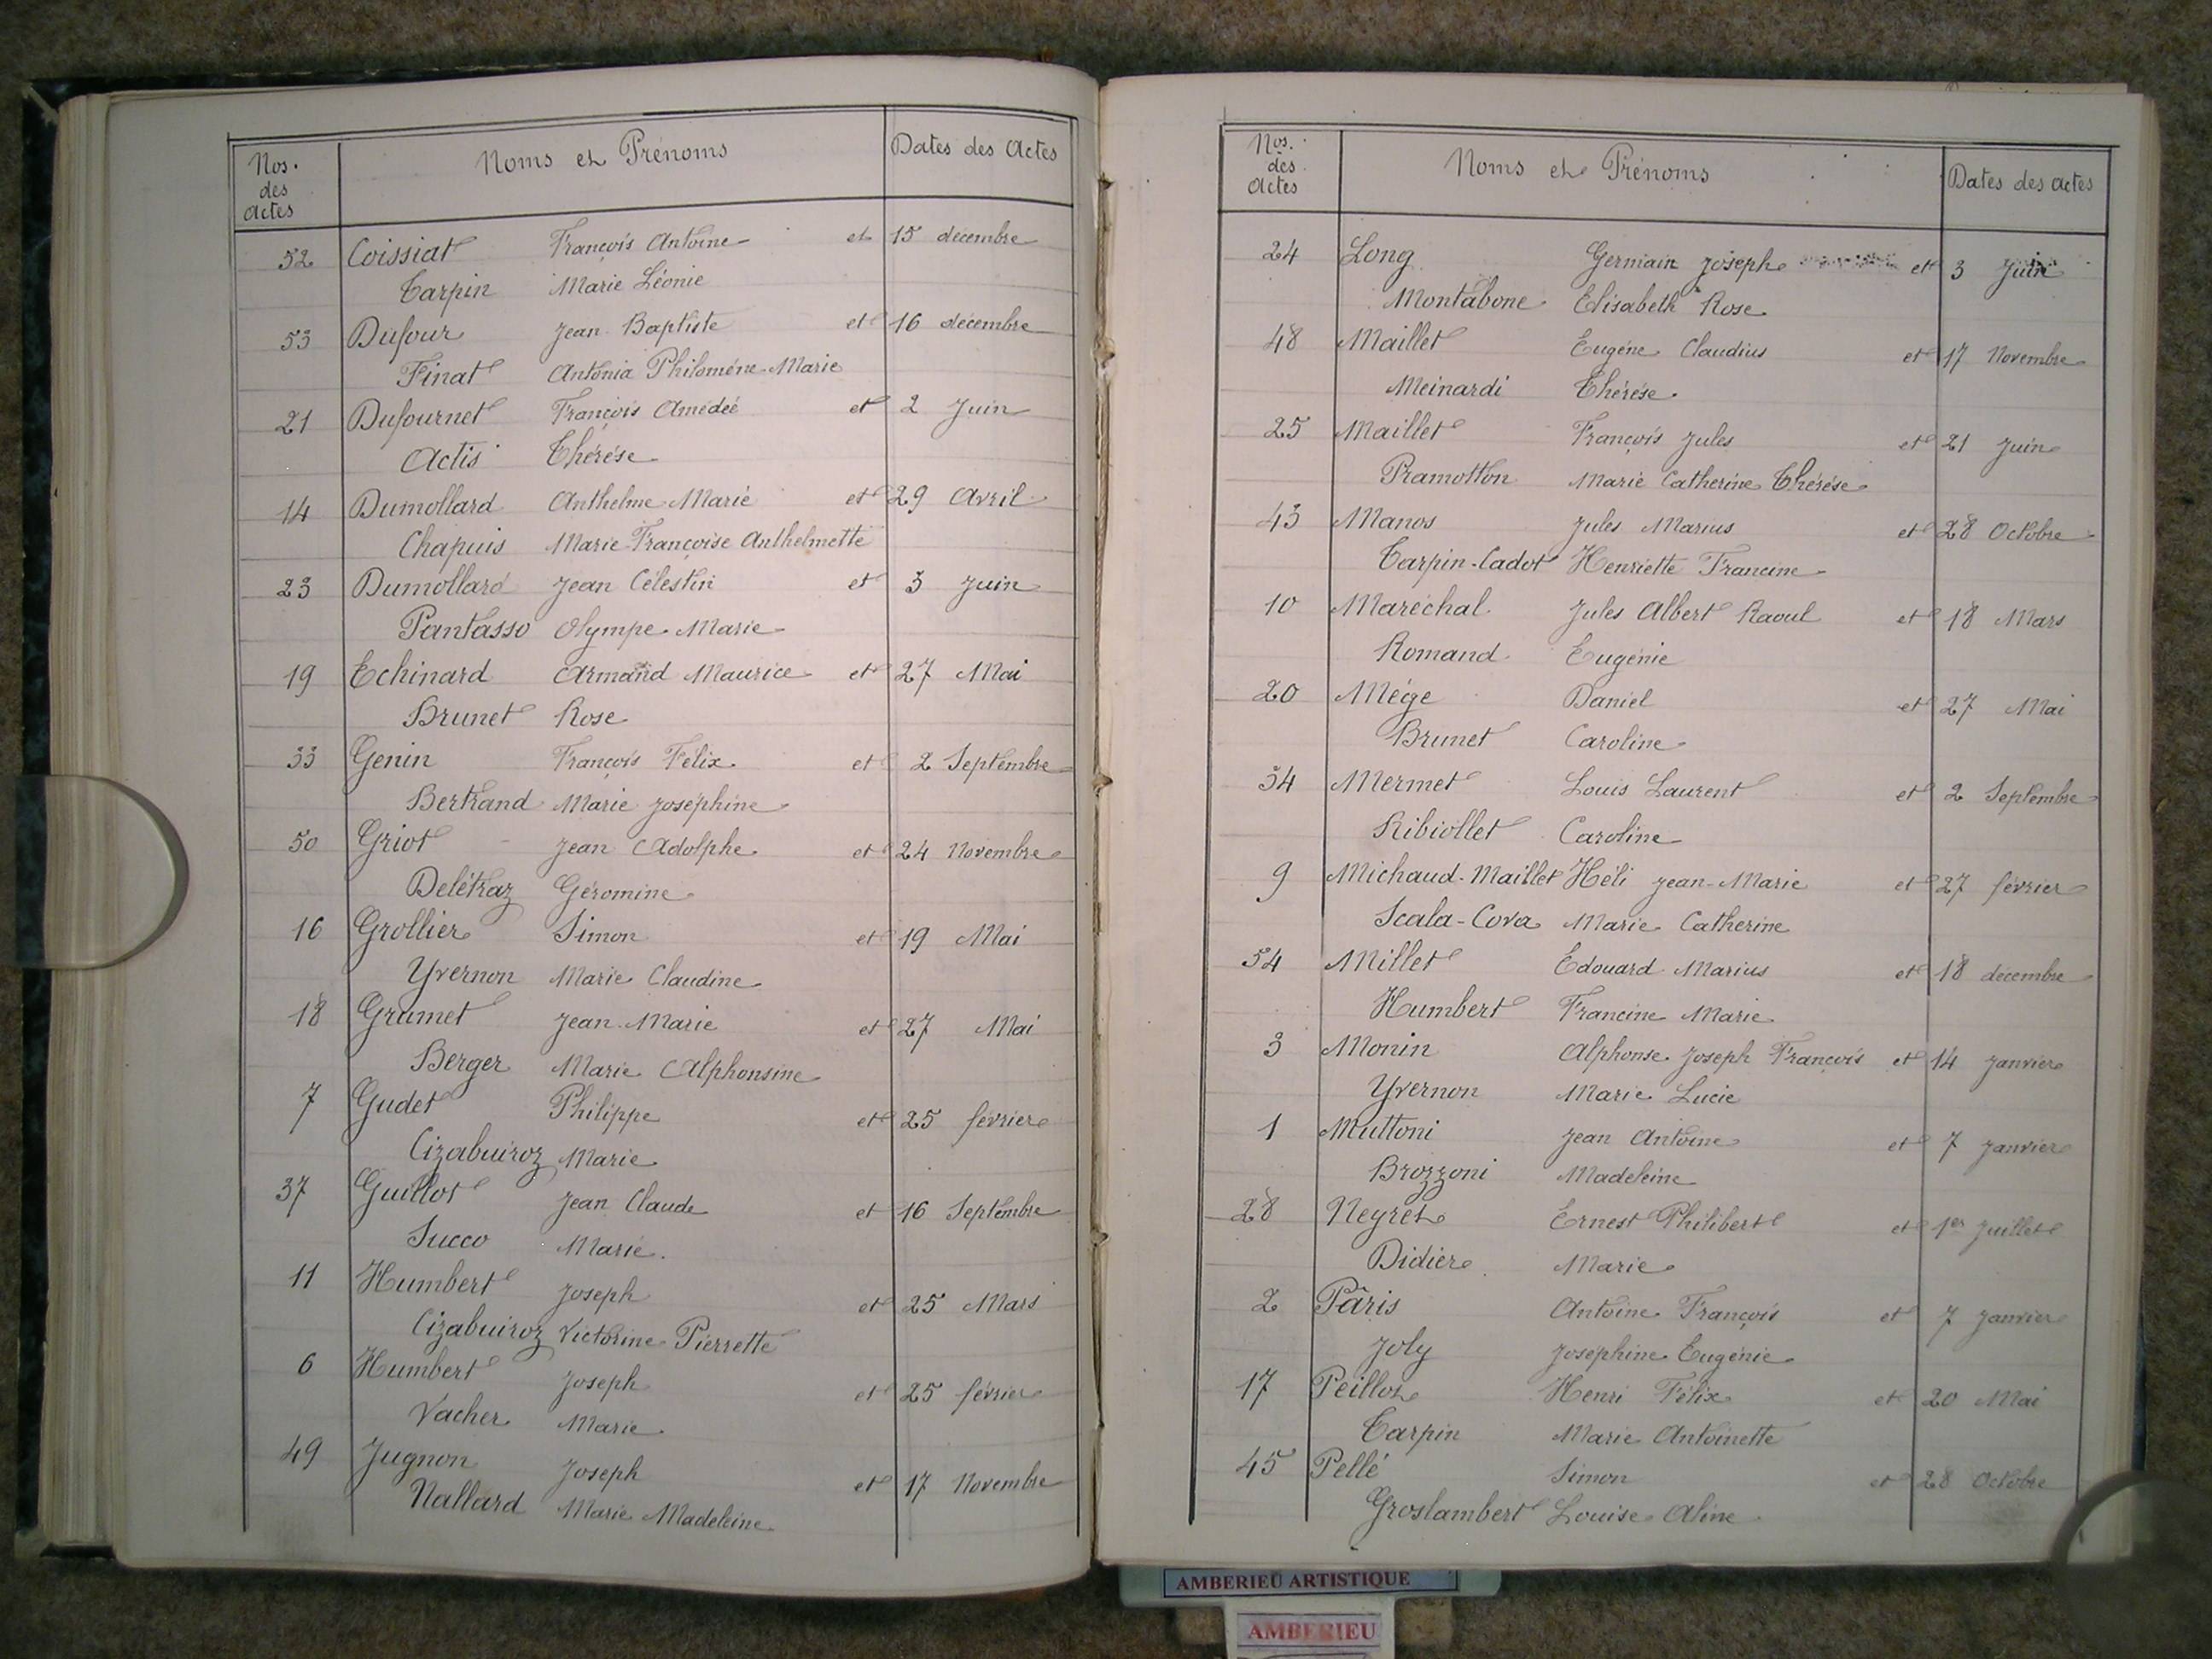 Nos. des Actes Noms et Prénoms Dates des Actes
52 Coissiat François Antoine et 15 décembre
Tarpin Marie Léonie
53 Dufour Jean Baptiste et 16 décembre
Finat Antonia Philomène Marie
21 Dufournet François Amédeé et 2 Juin
Actis Thérése
14 Dumollard Anthelme Marie et 29 Avril
Chapuis Marie Françoise Anthelmette
23 Dumollard Jean Célestin et 3 Juin
Pantasso Olympe Marie
19 Echinard Armand Maurice et 27 Mai
Brunet Rose
33 Genin François Félix et 2 Septembre
Bertrand Marie Joséphine
50 Griot Jean Adolphe et 24 Novembre
Delétraz Géromine
16 Grollier Simon et 19 Mai
Yvernon Marie Claudine
18 Grumet Jean Marie et 27 Mai
Berger Marie Alphonsine
7 Gudet Philippe et 25 février
Cizabuiroz Marie
37 Guillot Jean Claude et 16 Septembre
Succo Marie.
11 Humbert Joseph et 25 Mars
Cizabuiroz Victorine Pierrette
6 Humbert Joseph et 25 février
Vacher Marie
49 Jugnon Joseph et 17 Novembre
Nallard Marie Madeleine
Nos. des Actes Noms et Prénoms Dates des Actes
24 Long Germain Joseph et 3 Juin
Montabone Elisabeth Rose
48 Maillet Eugéne Claudius et 17 Novembre
Meinardi Thérése
25 Maillet François Jules et 21 Juin
Pramotton Marie Catherine Thérése
43 Manos Jules Marius et 28 Octobre
Tarpin-Cadot Henriette Francine
10 Maréchal Jules Albert Raoul et 18 Mars
Romand Eugénie
20 Mége Daniel et 27 Mai
Brunet Caroline
34 Mermet Louis Laurent et 2 Septembre
Ribiollet Caroline
9 Michaud-Maillet Héli Jean-Marie et 27 février
Scala-Cova Marie Catherine
54 Millet Edouard Marius et 18 décembre
Humbert Francine Marie
3 Monin Alphonse Joseph François et 14 Janvier
Yvernon Marie Lucie
1 Muttoni Jean Antoine et 7 Janvier
Brozzoni Madeleine
28 Neyret Ernest Philibert et 1er Juillet
Didier Marie
2 Pâris Antoine François et 7 Janvier
Joly Josephine Eugénie
17 Peillot Henri Félix et 20 Mai
Tarpin Marie Antoinette
45 Pellé Simon et 28 Octobre
Groslambert Louise Aline
AMBERIEU ARTISTIQUE
AMBERIEU